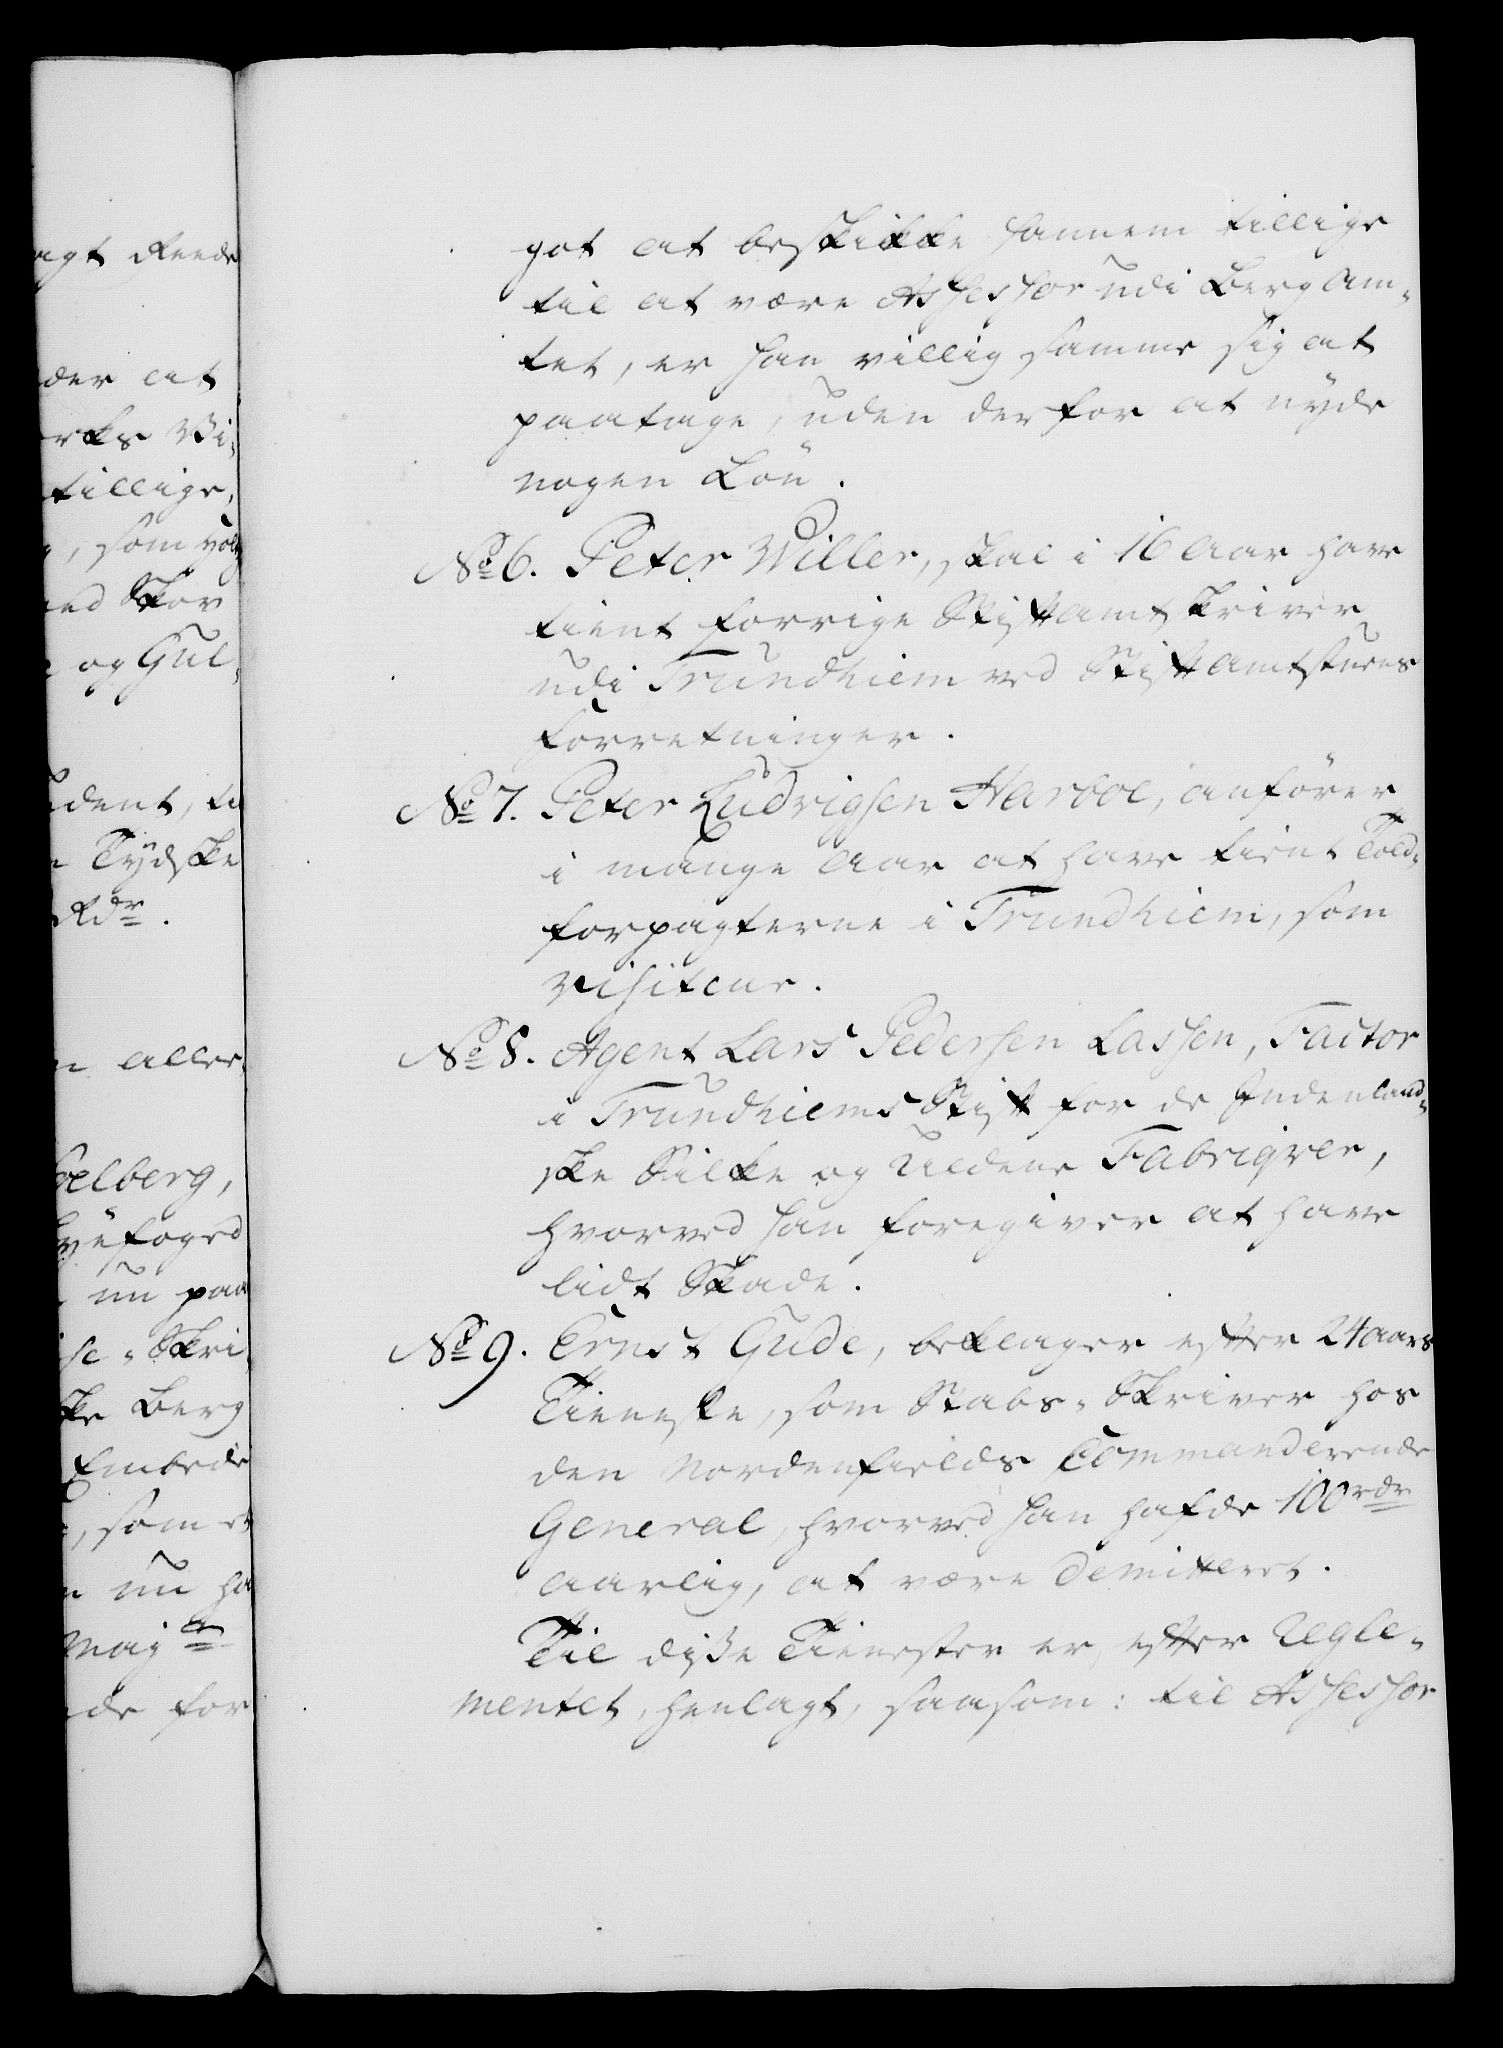 agt Reede
der at
erks Vi-
tillige,
, som
end Skov
e og Gul-
udent,
n Tydske
Rdr.
n aller-
oelberg,
Byefoged
nu paa
se-Skri-
ske Berg
Embede
, som
n nu ha
Mayt
nde for
got at beskikke hannem tillige
til at være Assessor udi Berg Am-
tet, er han villig samme sig at
paatage, uden derfor at nyde
nogen Løn.
No 6. Peter Willer, skal i 16 Aar have
tient forrige Stiftamtskriver
udi Trundhiem ved Stiftamtstuens
Forretninger.
No 7. Peter Ludvigsen Harboe, anfører
i mange Aar at have tient Told-
forpagterne i Trundhiem, som
Visiteur.
No 8. Agent Lars Pedersen Lassen, Factor
i Trundhiems Stift for de Indenland-
ske Silke og Uldene Fabriqver,
hvorved han foregiver at have
lidt Skade.
No 9. Ernst Gude, beklager efter 24 Aars
Tieneste, som Stabs-Skriver hos
den Nordenfields Commanderende
General, hvorved han hafde 100 rdr
aarlig, at være demitteret.
Til disse Tienester er, efter Regle-
mentet, henlagt, saasom: til Assessor